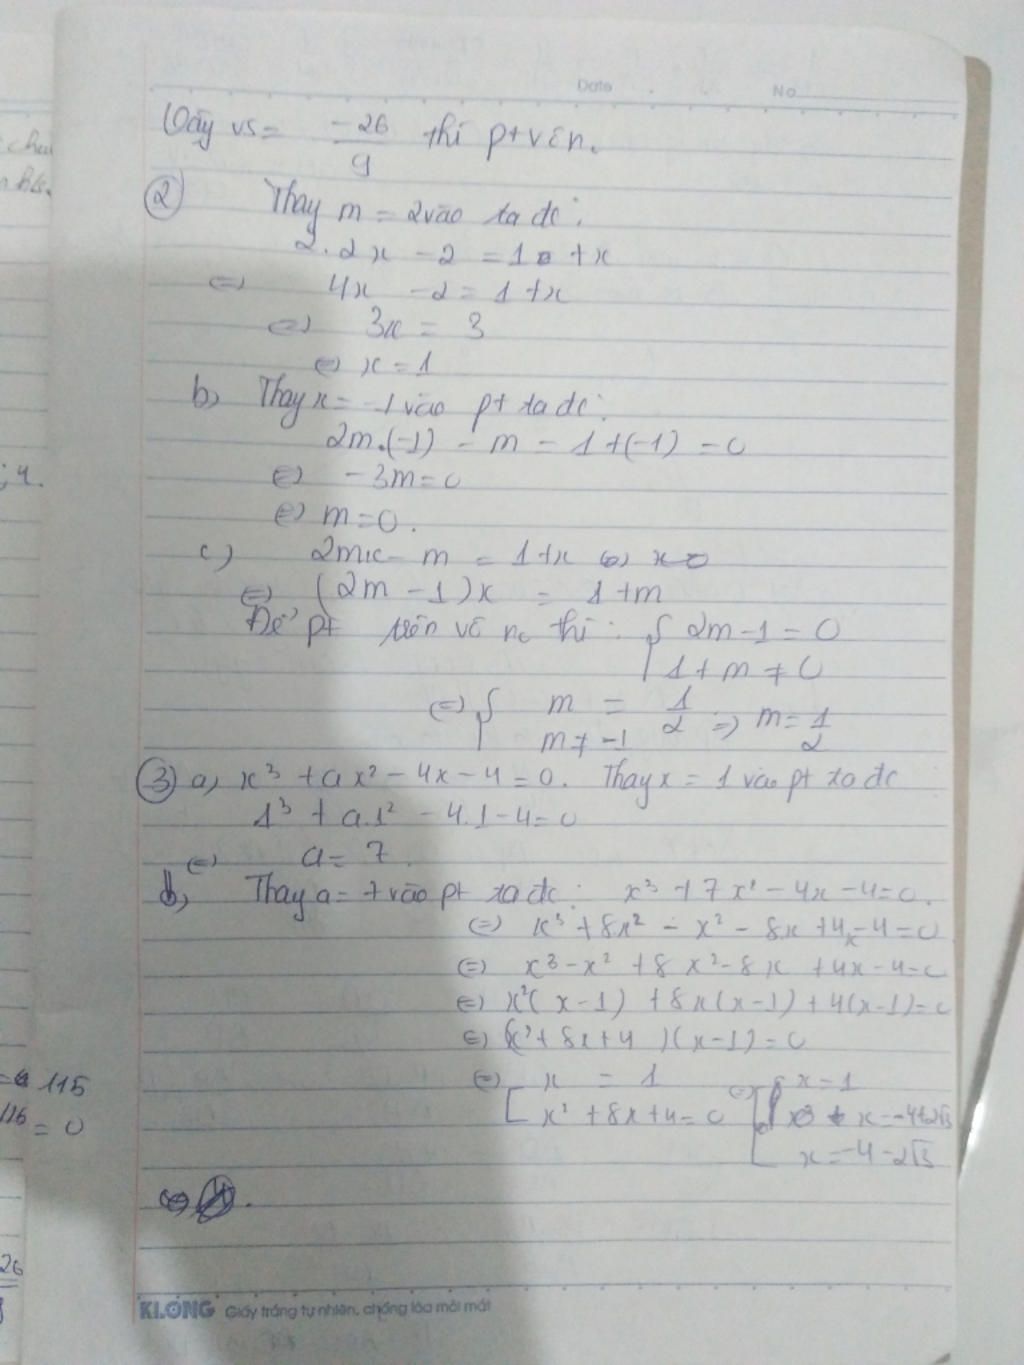 Date No
Vậy vs = -26/9 thì pt vô n.
② Thay m = 2 vào ta đc:
2.2x - 2 = 1 + x
⇔ 4x - 2 = 1 + x
⇔ 3x = 3
⇔ x = 1
b) Thay x = -1 vào pt ta đc:
2m.(-1) - m = 1 + (-1) = 0
⇔ -3m = 0
⇔ m = 0.
c) 2mx - m = 1 + x
⇔ (2m - 1)x = 1 + m
Để pt trên vô n₀ thì: { 2m - 1 = 0
1 + m ≠ 0
⇔ { m = 1/2 ⇒ m = 1/2
m ≠ -1
③ a) x³ + ax² - 4x - 4 = 0. Thay x = 1 vào pt ta đc
1³ + a.1² - 4.1 - 4 = 0
⇔ a = 7.
b) Thay a = 7 vào pt ta đc: x³ + 7x² - 4x - 4 = 0.
⇔ x³ + 8x² - x² - 8x + 4x - 4 = 0
⇔ x³ - x² + 8x² - 8x + 4x - 4 = 0
⇔ x²(x - 1) + 8x(x - 1) + 4(x - 1) = 0
⇔ (x² + 8x + 4)(x - 1) = 0
⇔ [ x = 1 ⇔ [ x = 1
x² + 8x + 4 = 0 x = -4 + 2√3
x = -4 - 2√3
KLONG Giấy trắng tự nhiên, chống lóa mỏi mắt
; 4.
115
116 = 0
26